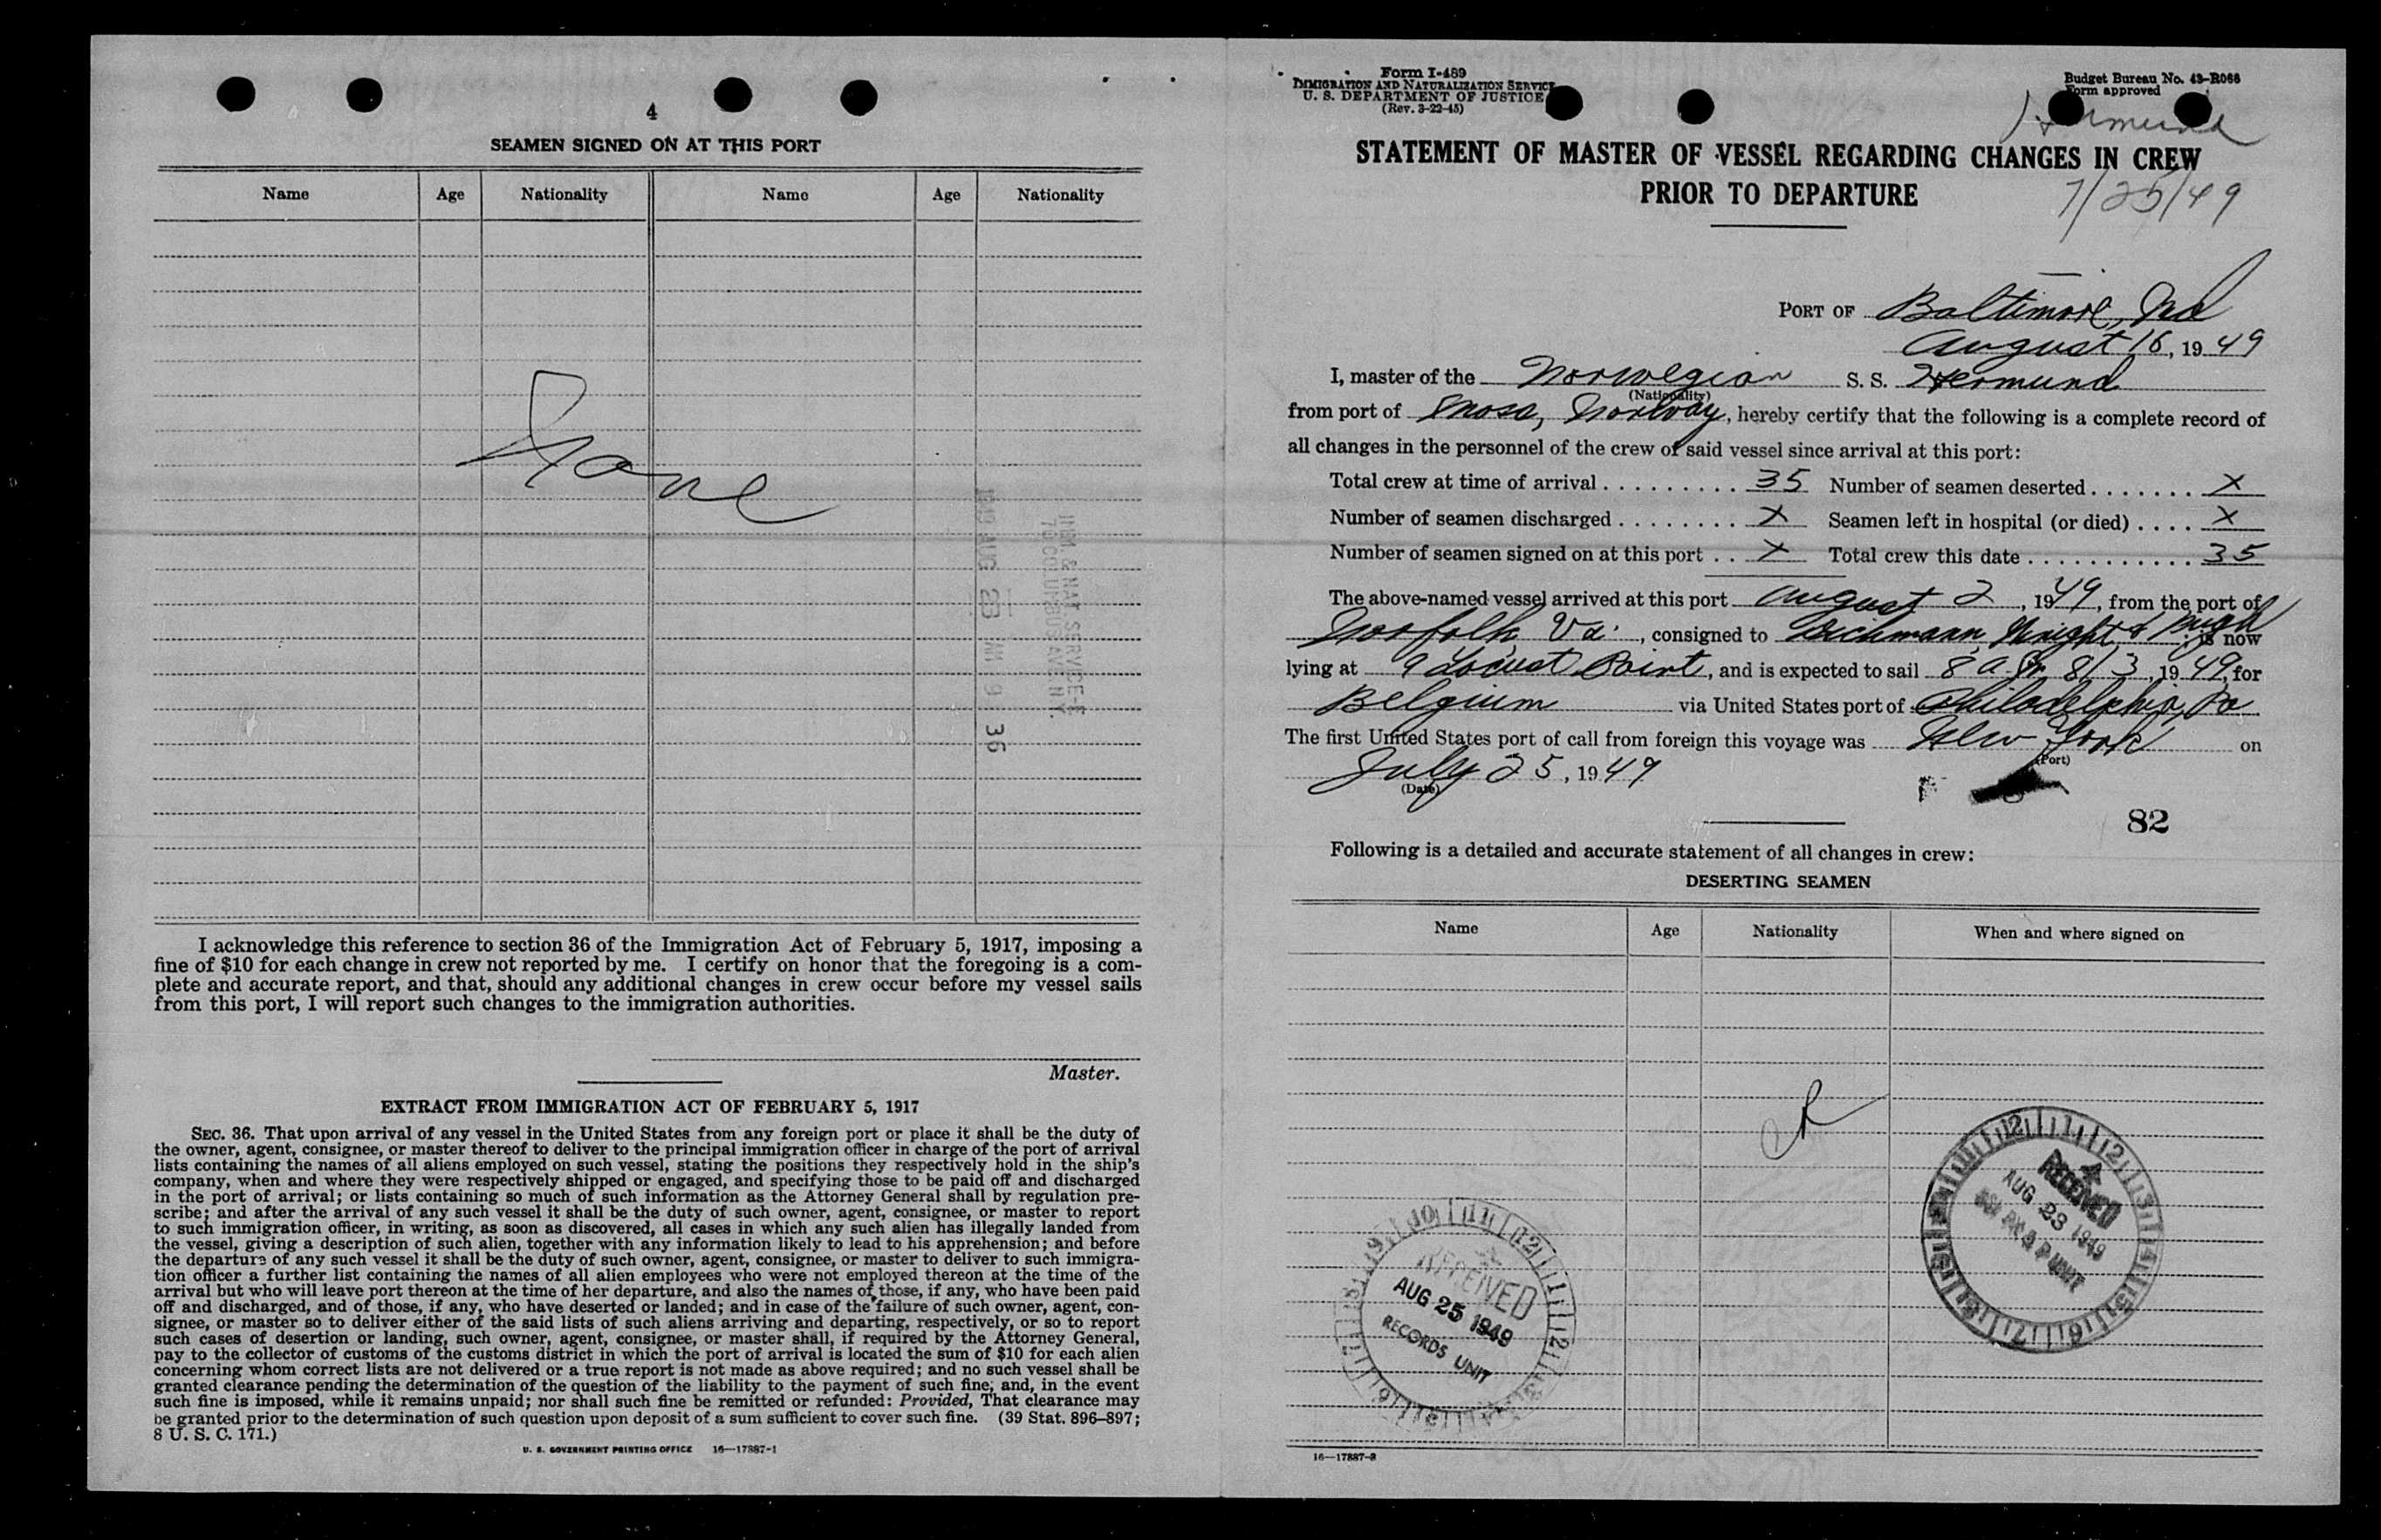 4
SEAMEN SIGNED ON AT THIS PORT
Name Age Nationality Name Age Nationality
None
1949 AUG 23 AM 9 36
IMM & NAT SERVICE
70 COLUMBUS AVE. N.Y.
I acknowledge this reference to section 36 of the Immigration Act of February 5, 1917, imposing a
fine of $10 for each change in crew not reported by me. I certify on honor that the foregoing is a com-
plete and accurate report, and that, should any additional changes in crew occur before my vessel sails
from this port, I will report such changes to the immigration authorities.
Master.
EXTRACT FROM IMMIGRATION ACT OF FEBRUARY 5, 1917
SEC. 36. That upon arrival of any vessel in the United States from any foreign port or place it shall be the duty of
the owner, agent, consignee, or master thereof to deliver to the principal immigration officer in charge of the port of arrival
lists containing the names of all aliens employed on such vessel, stating the positions they respectively hold in the ship's
company, when and where they were respectively shipped or engaged, and specifying those to be paid off and discharged
in the port of arrival; or lists containing so much of such information as the Attorney General shall by regulation pre-
scribe; and after the arrival of any such vessel it shall be the duty of such owner, agent, consignee, or master to report
to such immigration officer, in writing, as soon as discovered, all cases in which any such alien has illegally landed from
the vessel, giving a description of such alien, together with any information likely to lead to his apprehension; and before
the departure of any such vessel it shall be the duty of such owner, agent, consignee, or master to deliver to such immigra-
tion officer a further list containing the names of all alien employees who were not employed thereon at the time of the
arrival but who will leave port thereon at the time of her departure, and also the names of those, if any, who have been paid
off and discharged, and of those, if any, who have deserted or landed; and in case of the failure of such owner, agent, con-
signee, or master so to deliver either of the said lists of such aliens arriving and departing, respectively, or so to report
such cases of desertion or landing, such owner, agent, consignee, or master shall, if required by the Attorney General,
pay to the collector of customs of the customs district in which the port of arrival is located the sum of $10 for each alien
concerning whom correct lists are not delivered or a true report is not made as above required; and no such vessel shall be
granted clearance pending the determination of the question of the liability to the payment of such fine, and, in the event
such fine is imposed, while it remains unpaid; nor shall such fine be remitted or refunded: Provided, That clearance may
be granted prior to the determination of such question upon deposit of a sum sufficient to cover such fine. (39 Stat. 896–897;
8 U. S. C. 171.)
U. S. GOVERNMENT PRINTING OFFICE 16—17887-1
Form I-489
IMMIGRATION AND NATURALIZATION SERVICE
U. S. DEPARTMENT OF JUSTICE
(Rev. 3-22-45)
Budget Bureau No. 43-R066
Form approved
Hermund
STATEMENT OF MASTER OF VESSEL REGARDING CHANGES IN CREW
PRIOR TO DEPARTURE
7/25/49
PORT OF Baltimore, Md
August 16, 1949
I, master of the Norwegian S. S. Hermund
(Nationality)
from port of Norway, hereby certify that the following is a complete record of
all changes in the personnel of the crew of said vessel since arrival at this port:
Total crew at time of arrival . . . . . . . . . . 35 Number of seamen deserted . . . . . . . X
Number of seamen discharged . . . . . . . . X Seamen left in hospital (or died) . . . . X
Number of seamen signed on at this port . . X Total crew this date . . . . . . . . . . . . 35
The above-named vessel arrived at this port August 2, 1949, from the port of
Norfolk Va., consigned to Dichmann, Wright & Pugh is now
lying at 9 Locust Point, and is expected to sail 8 8/3, 1949, for
Belgium via United States port of Philadelphia, Pa
The first United States port of call from foreign this voyage was New York on
(Port)
July 25, 1949
(Date)
82
Following is a detailed and accurate statement of all changes in crew:
DESERTING SEAMEN
Name Age Nationality When and where signed on
RECEIVED
AUG 23 1949
UNIT
RECEIVED
AUG 25 1949
RECORDS UNIT
16—17887-2